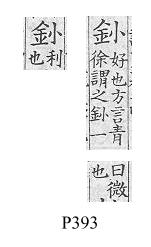 釥
好也方言青
徐謂之釥一
曰微
也
釥
利
也
P393